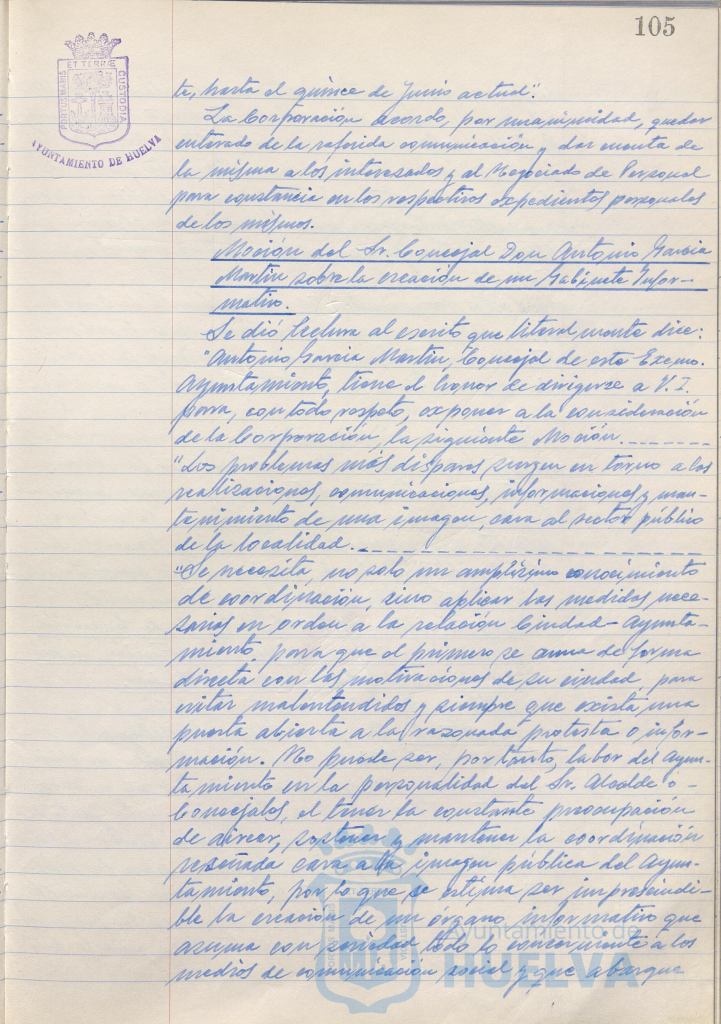 105
PORTUS MARIS ET TERRÆ CUSTODIA
AYUNTAMIENTO DE HUELVA
te, hasta el quince de Junio actual".
La Corporación acordó, por unanimidad, quedar
enterado de la referida comunicación y dar cuenta de
la misma a los interesados y al Negociado de Personal
para constancia en los respectivos expedientes personales
de los mismos.
Moción del Sr. Concejal Don Antonio Garcia
Martin sobre la creación de un Gabinete Infor-
mativo.
Se dió lectura al escrito que literalmente dice:
"Antonio Garcia Martin, Concejal de este Excmo.
Ayuntamiento, tiene el honor de dirigirse a V.I.
para, con todo respeto, exponer a la consideración
de la Corporación, la siguiente Moción.
"Los problemas más dispares surgen en torno a las
realizaciones, comunicaciones, informaciones y man-
tenimiento de una imagen, cara al sector público
de la localidad.
"Se necesita, no solo un amplísimo conocimiento
de coordinación, sino aplicar las medidas nece-
sarias en orden a la relación Ciudad-Ayunta-
miento, para que el primero se una de forma
directa con las motivaciones de su ciudad, para
evitar malentendidos y siempre que exista una
puerta abierta a la razonada protesta o infor-
mación. No puede ser, por tanto, labor del Ayun-
tamiento en la personalidad del Sr. Alcalde o
Concejales, el tener la constante preocupación
de sostener y mantener la coordinación
reseñada cara a la imagen pública del Ayun-
tamiento, por lo que se estima ser imprescindi-
ble la creación de un órgano informativo que
asuma con seriedad todo lo concerniente a los
medios de comunicación social y que abarque
Ayuntamiento de
HUELVA